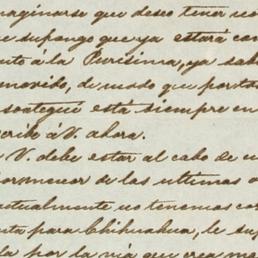 maginarse que deseo tener no
e supongo que ya estará con
to á la Purísima, ya sab
movido, de modo que por to
está siempre en
á V. ahora.
V. debe estar al cabo de u
pormenor de las ultimas o
ctualmente no tenemos co
ta para Chihuahua, le su
la por la via que crea ma